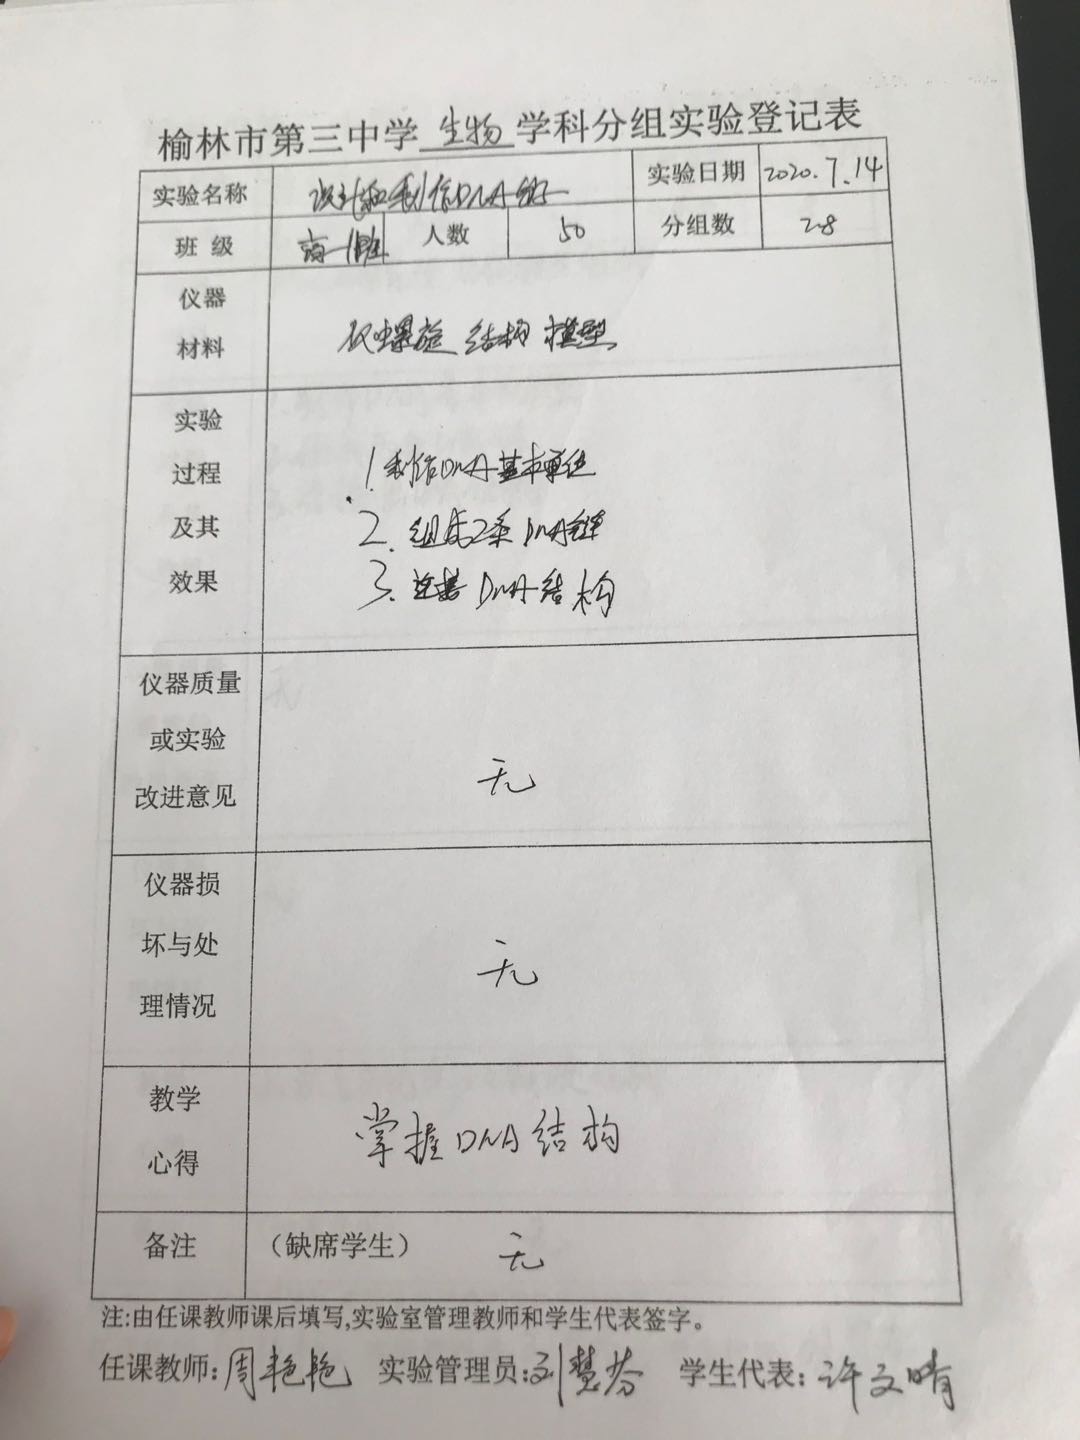 榆林市第三中学 生物 学科分组实验登记表
实验名称 设计和制作DNA 实验日期 2020.7.14
班 级 高一 人数 50 分组数 28
仪器
材料
双螺旋 结构 模型
实验
过程
及其
效果
1 制作DNA基本单位
2. 组成2条DNA链
3. 连接DNA结构
仪器质量
或实验
改进意见
无
仪器损
坏与处
理情况
无
教学
心得
掌握DNA结构
备注 (缺席学生) 无
注:由任课教师课后填写,实验室管理教师和学生代表签字。
任课教师:周艳艳 实验管理员:刘慧芬 学生代表:许文晴